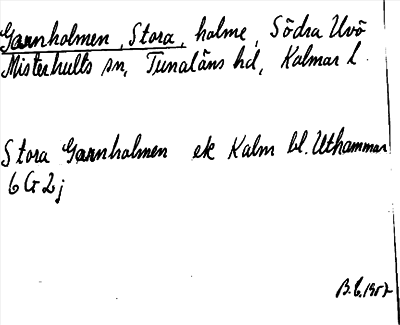 Garnholmen, Stora, holme, Södra Uvö
Misterhults sn, Tunaläns hd, Kalmar l.
Stora Garnholmen ek Kalm bl. Uthammar
6 G 2 j